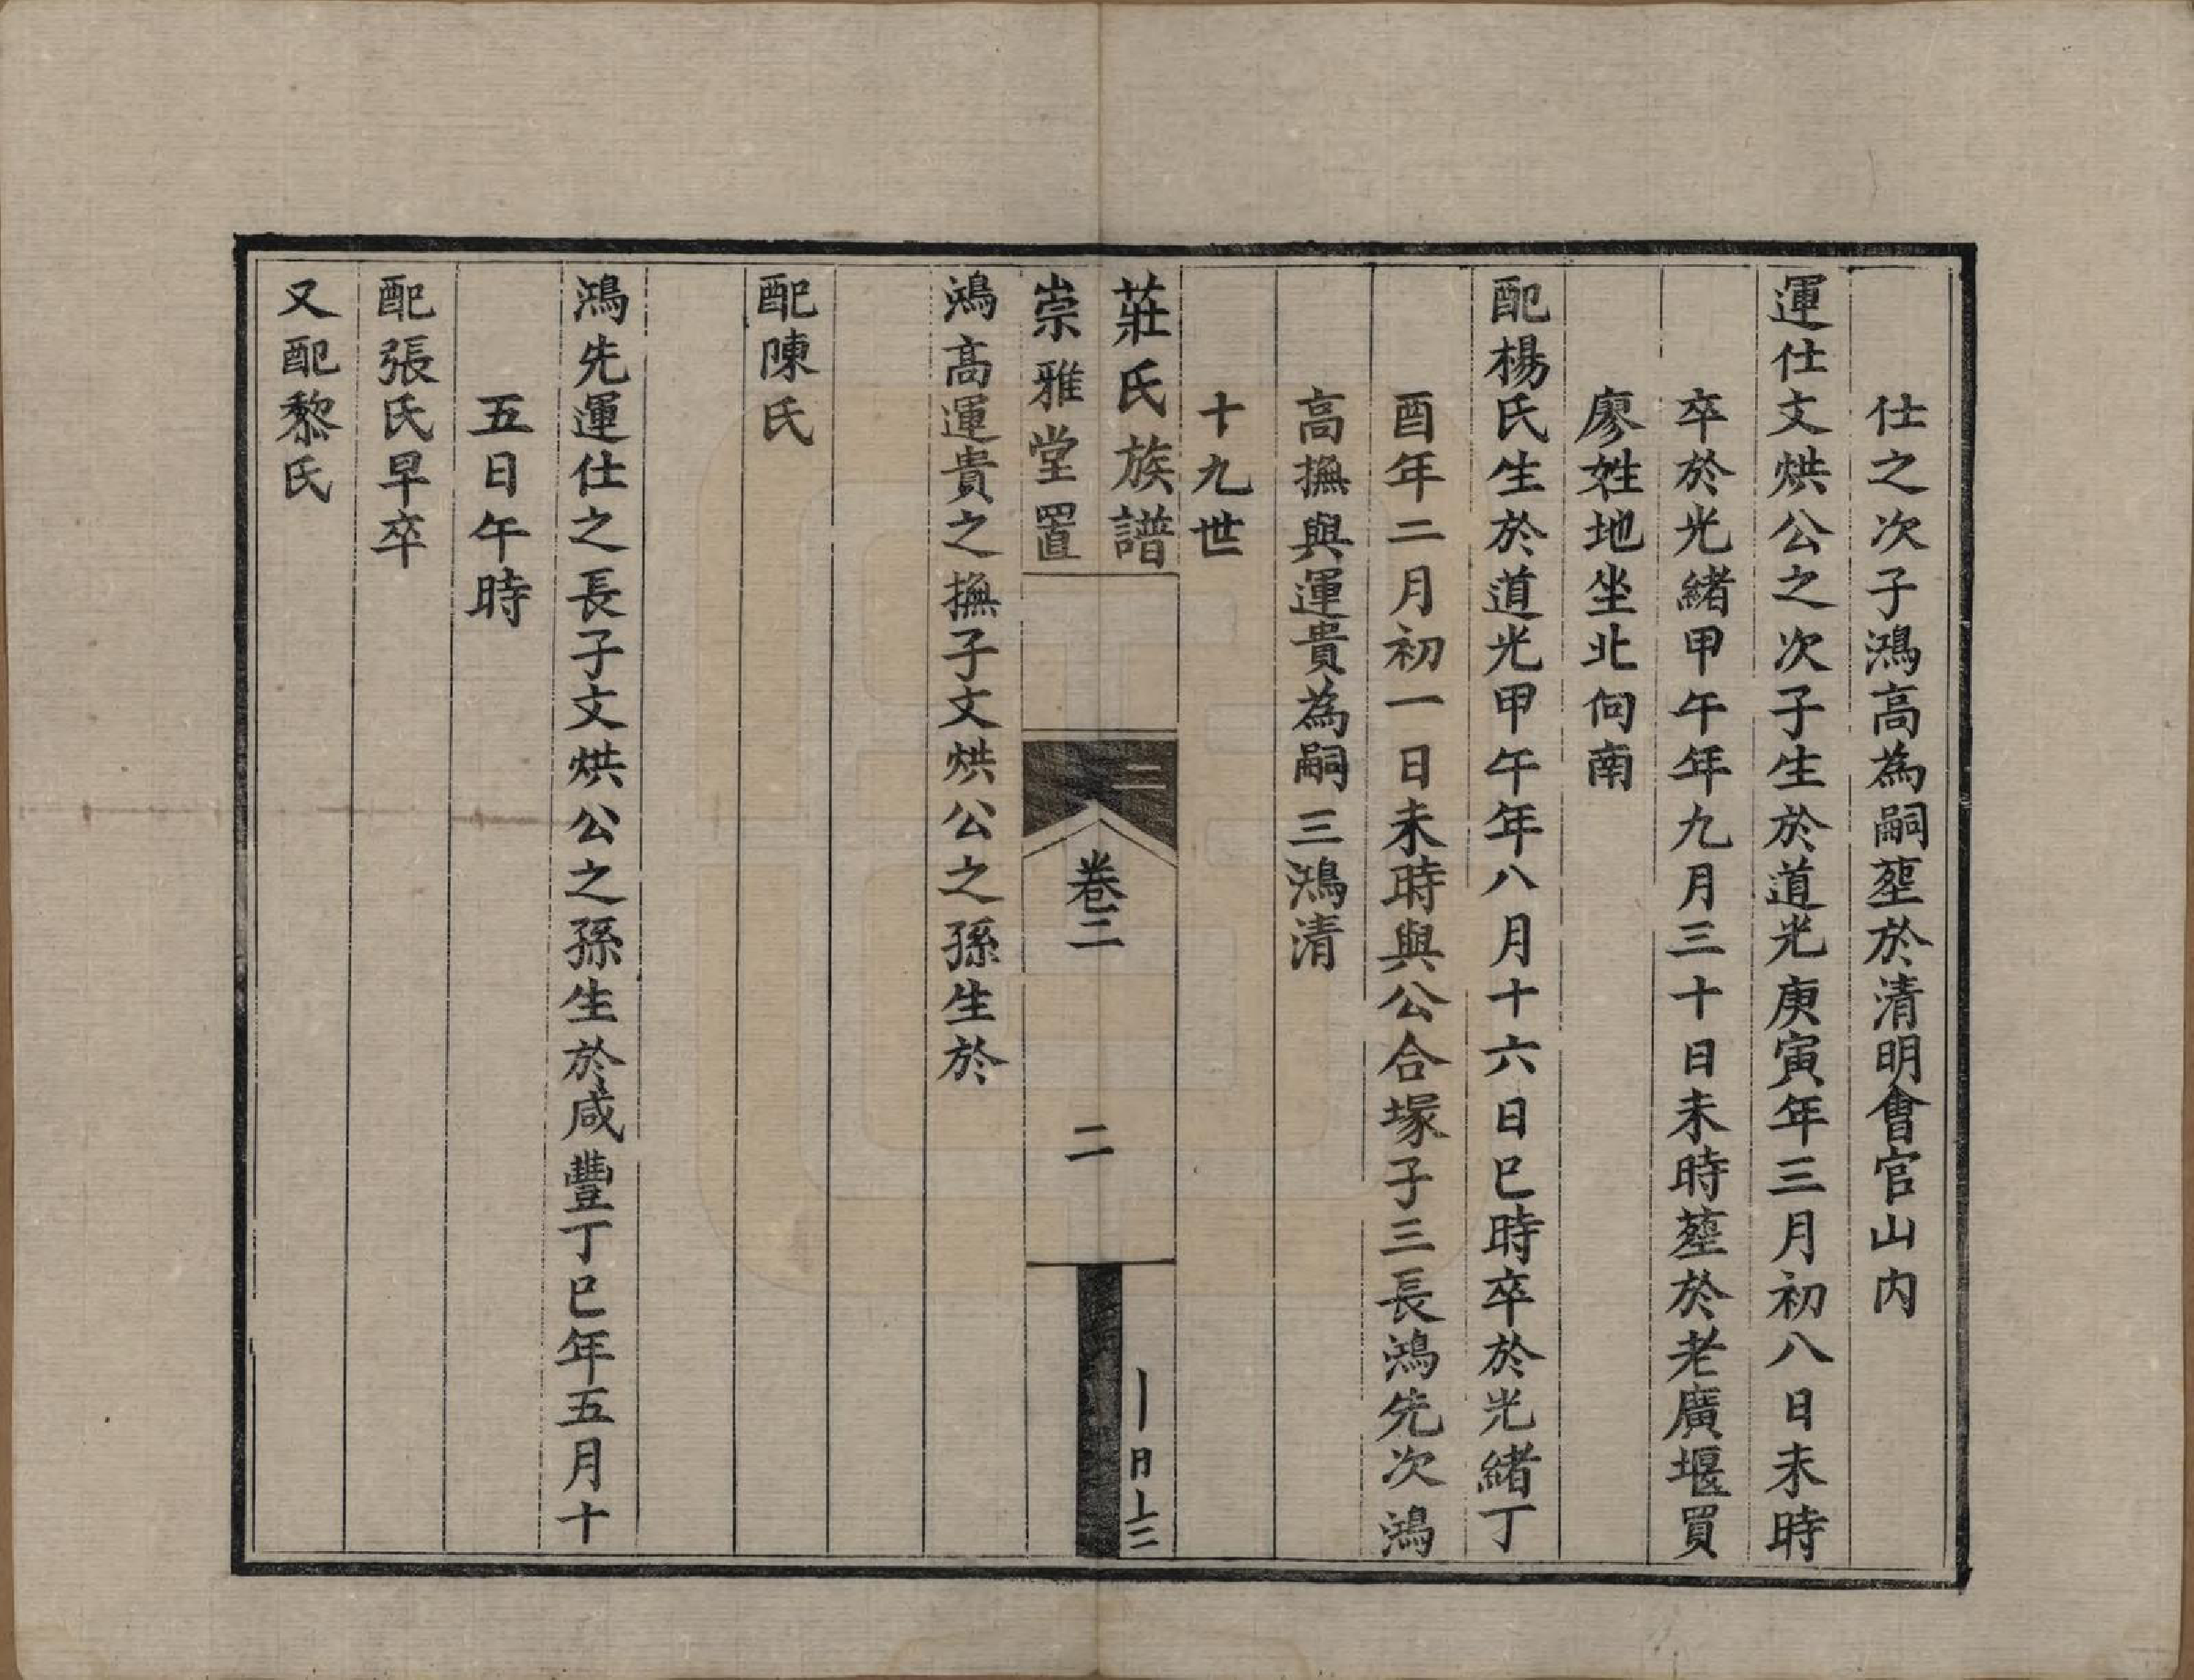 仕之次子鴻高為嗣塟於清明會官山内
運仕文烘公之次子生於道光庚寅年三月初八日未時
卒於光緒甲午年九月三十日未時塟於老廣堰買
廖姓地坐北向南
配楊氏生於道光甲午年八月十六日巳時卒於光緒丁
酉年二月初一日未時與公合塚子三長鴻先次鴻
高撫與運貴為嗣三鴻清
十九世
莊氏族譜
崇雅堂置
二
卷二
二
鴻高運貴之撫子文烘公之孫生於
配陳氏
鴻先運仕之長子文烘公之孫生於咸豐丁巳年五月十
五日午時
配張氏早卒
又配黎氏